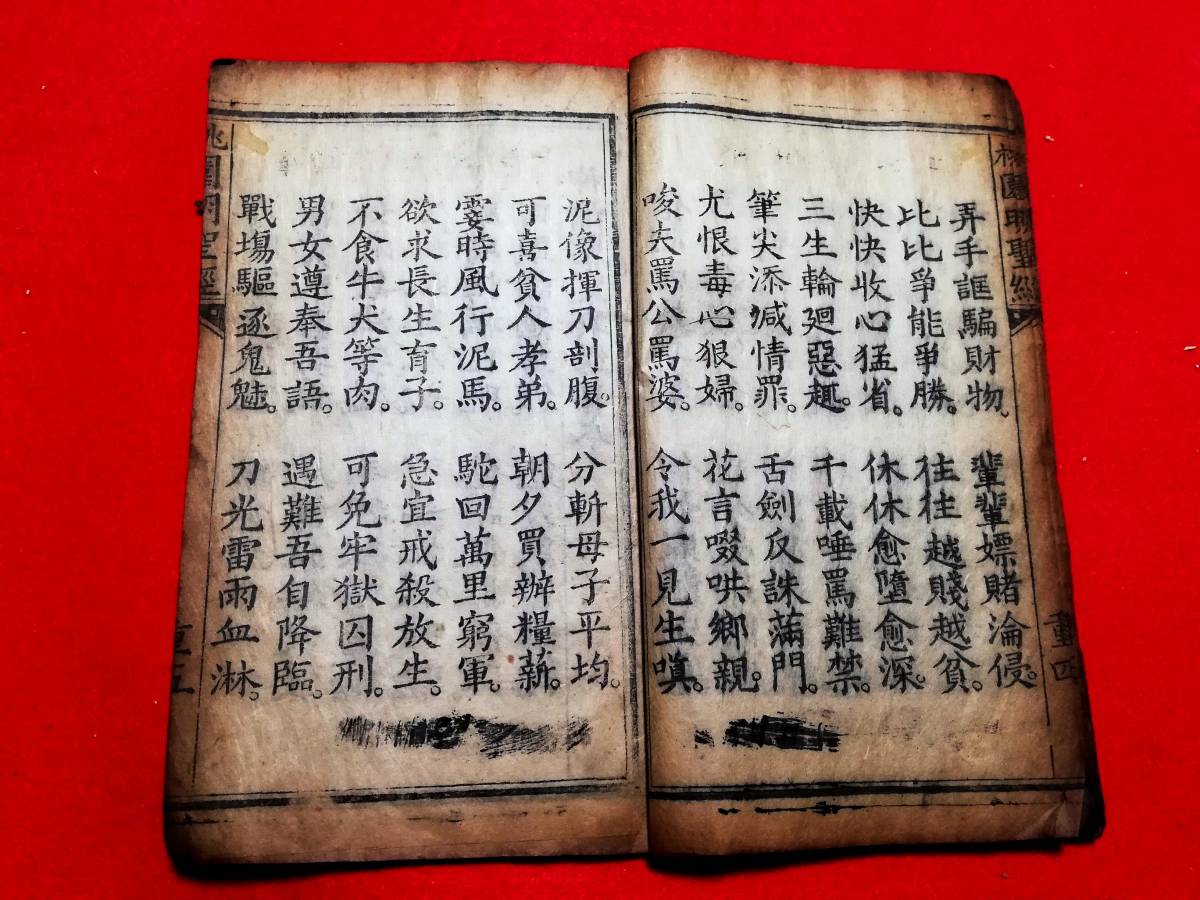 桃園明聖經
弄手誆騙財物。 輩輩嫖賭淪侵。
比比爭能爭勝。 往往越賤越貧。
快快收心猛省。 休休愈墮愈深。
三生輪廻惡趣。 千載唾罵難禁。
筆尖添减情罪。 舌劍反誅滿門。
尤恨毒心狠婦。 花言啜哄鄉親。
唆夫罵公罵婆。 令我一見生嗔。
泥像揮刀剖腹。 分斬母子平均。
可喜貧人孝弟。 朝夕買辦糧薪。
霎時風行泥馬。 駝回萬里窮軍。
欲求長生育子。 急宜戒殺放生。
不食牛犬等肉。 可免牢獄囚刑。
男女遵奉吾語。 遇難吾自降臨。
戰塲驅逐鬼魅。 刀光雷雨血淋。
桃園明聖經